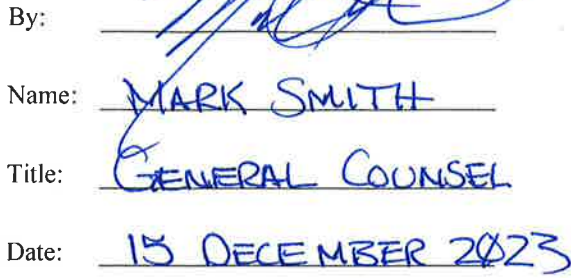 By:
Name: MARK SMITH
Title: GENERAL COUNSEL
Date: 15 DECEMBER 2023